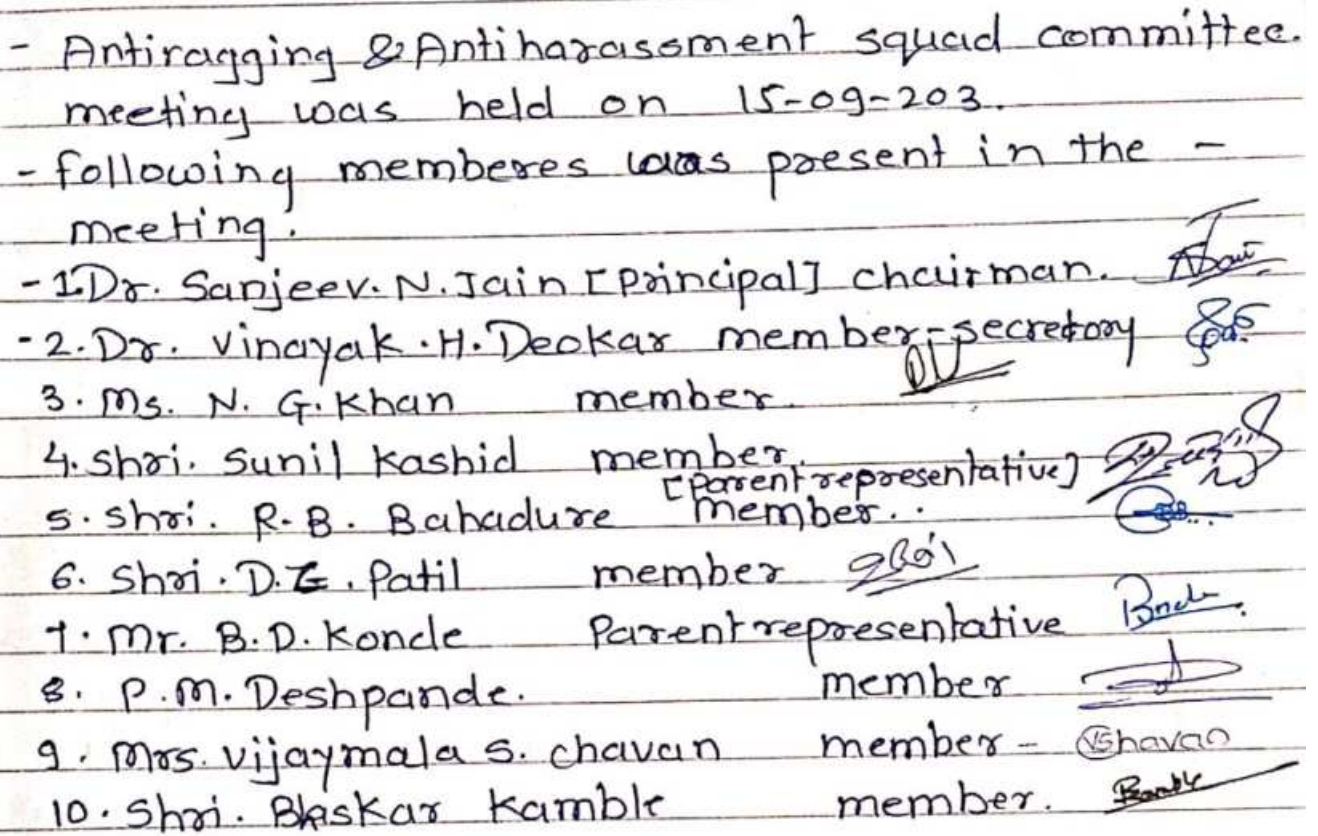 - Antiragging & Antiharassment squad committee.
meeting was held on 15-09-203.
- following memberes was present in the -
meeting.
- 1. Dr. Sanjeev. N. Jain [Principal] chairman.
- 2. Dr. Vinayak . H. Deokar member-secretory
3. Ms. N. G. Khan member.
4. Shri. Sunil Kashid member.
[Parent representative]
5. Shri. R. B. Bahadure member..
6. Shri. D. G. Patil member
7. Mr. B. D. Konde Parent representative
8. P. M. Deshpande. member
9. Mrs. Vijaymala S. chavan member - VShavan
10. Shri. Bhaskar Kamble member.